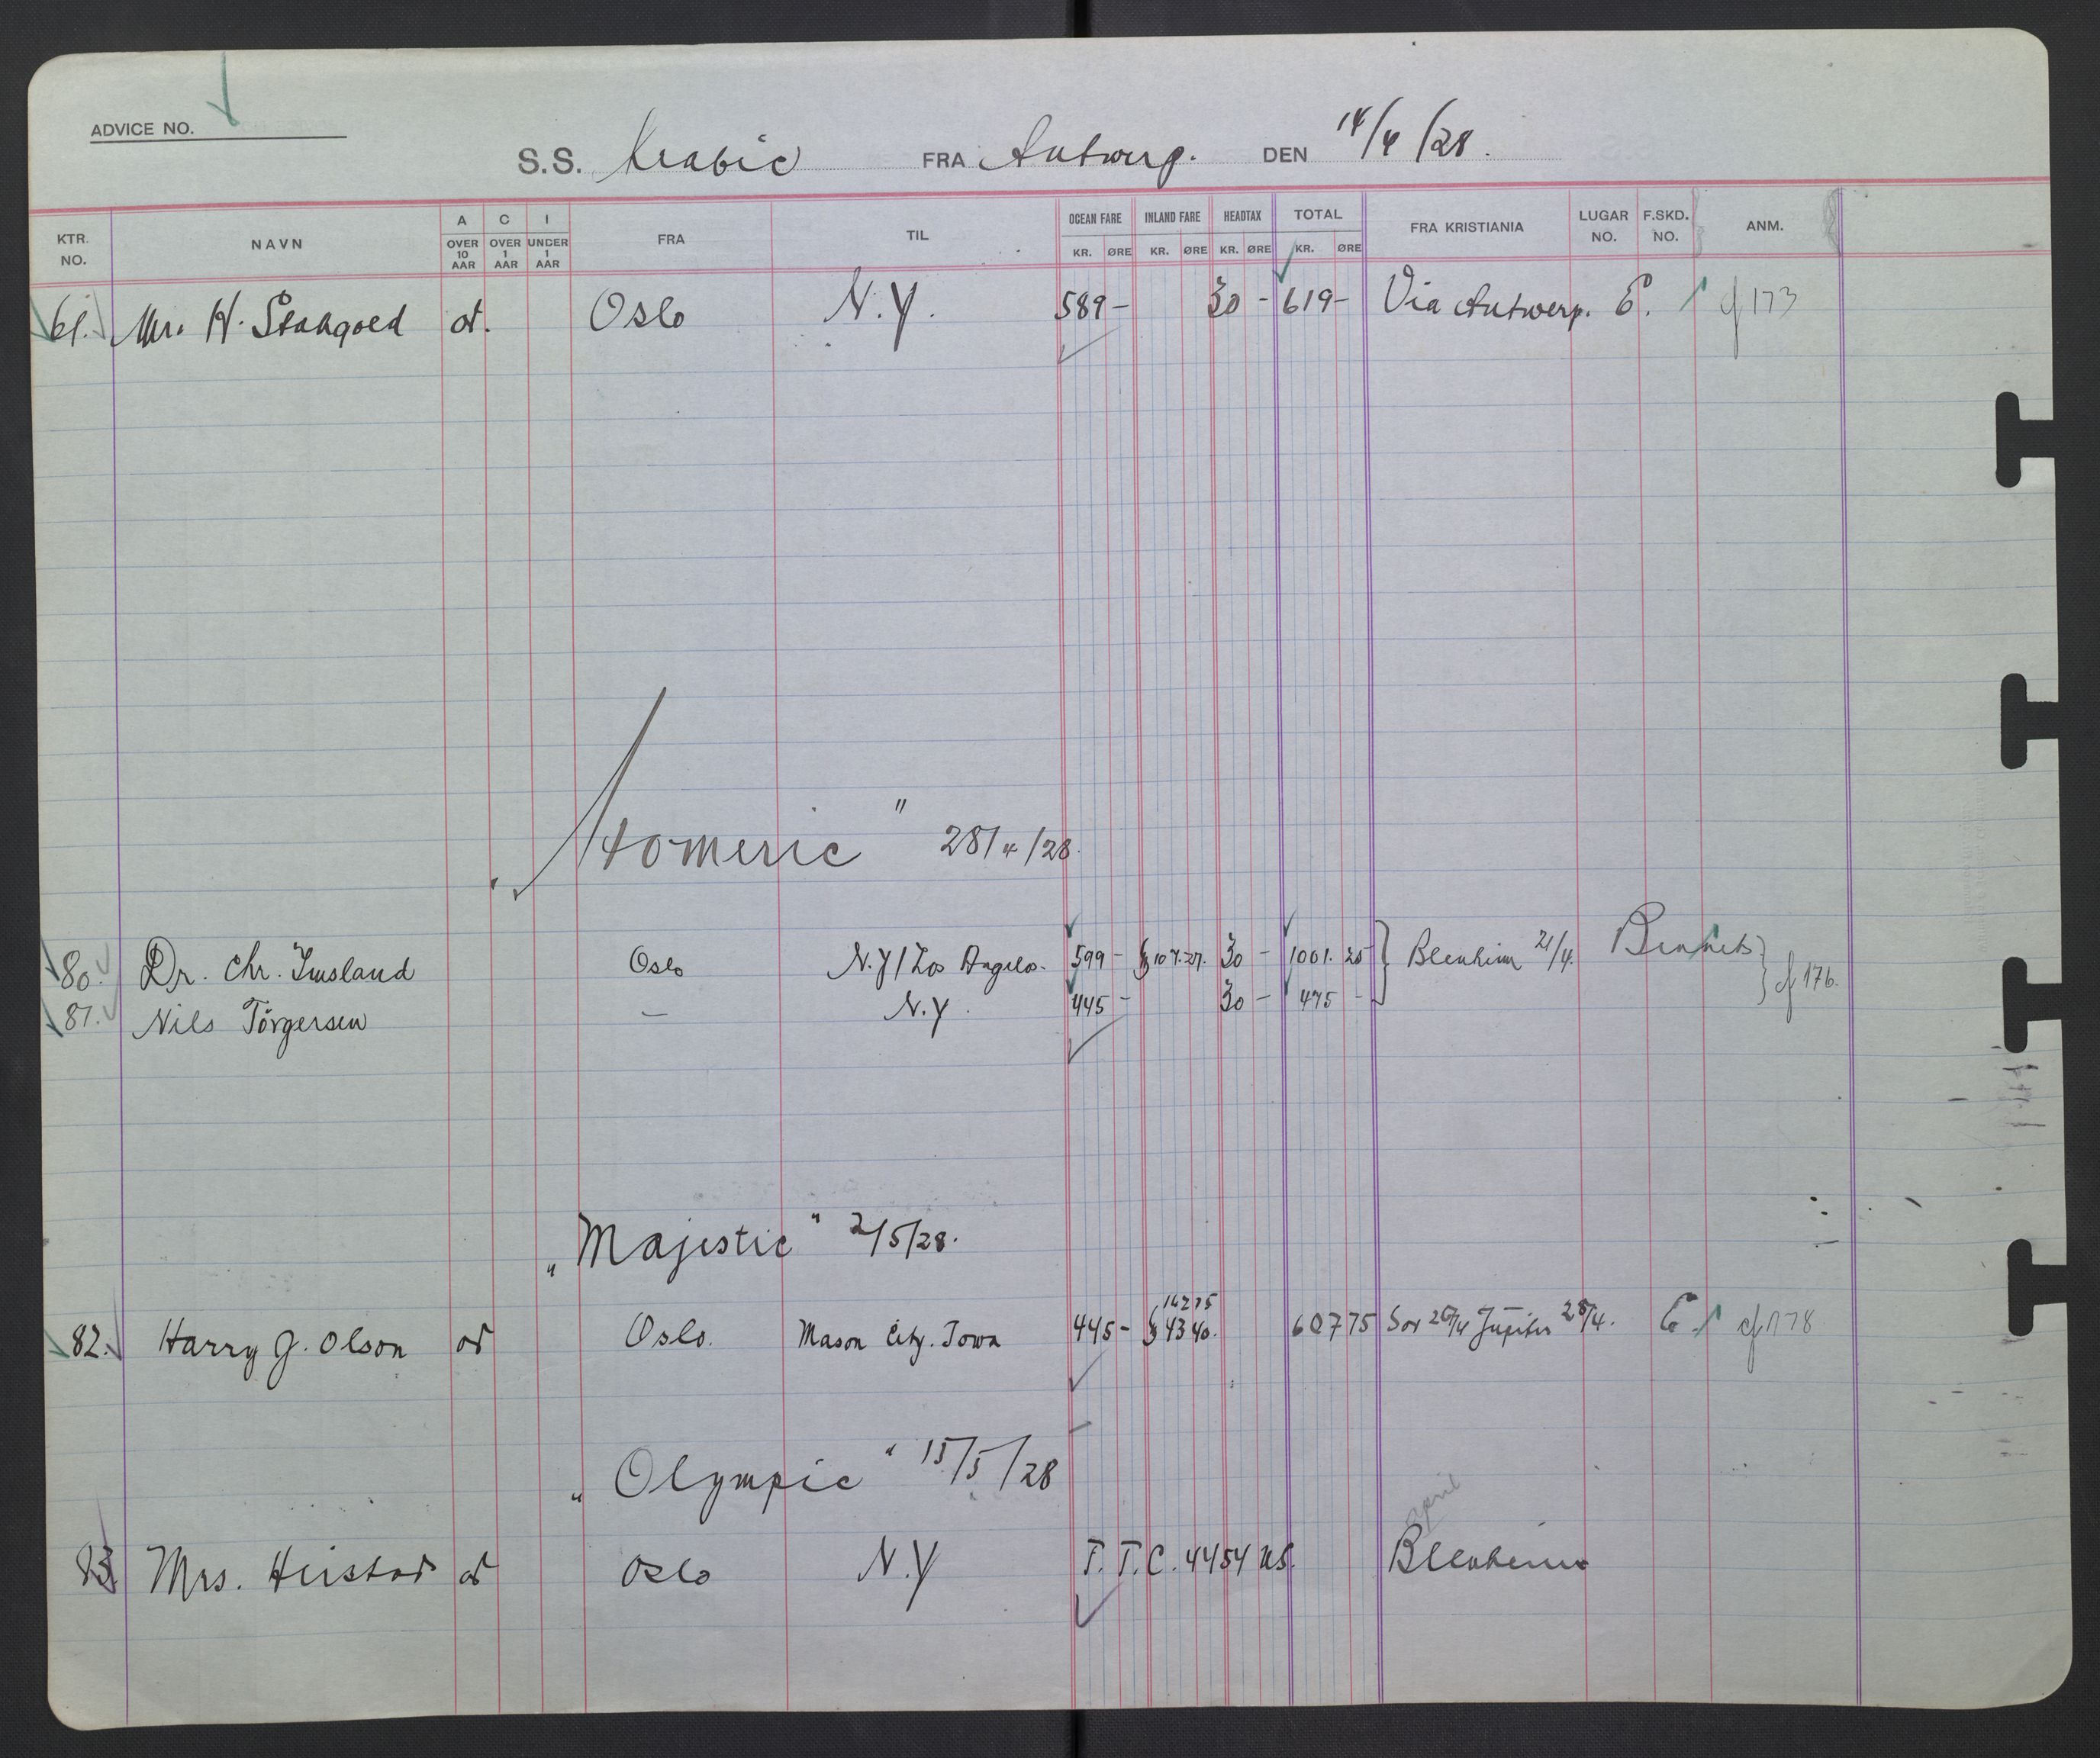 ADVICE NO.
S.S. Arabic FRA Antwerp. DEN 14/4/28.
KTR. NO. NAVN A OVER 10 AAR C OVER 1 AAR I UNDER 1 AAR FRA TIL OCEAN FARE KR. ØRE INLAND FARE KR. ØRE HEADTAX KR. ØRE TOTAL KR. ØRE FRA KRISTIANIA LUGAR NO. F.SKD. NO. ANM.
61. Mr. H. Stahgoed Oslo N.Y. 589 - 30 - 619 - Via Antwerp. E. cf 173
„Homeric" 28/4/28.
80. Dr. Chr. Imsland Oslo N.Y/Los Angelos. 599 - $107.27. 30 - 1001.25 Blenheim 21/4. Bennets cf 176.
81. Nils Törgersen — N.Y. 445 - 30 - 475 -
„Majestic" 2/5/28.
14275
82. Harry J. Olson Oslo. Mason City. Iowa 445 - $ 43 40. 607 75 26/4 Jupiter 28/4. E. cf 178
„Olympic" 15/5/28
april
83 Mrs. Heistad Oslo N.Y T.T.C. 4454 Blenheim